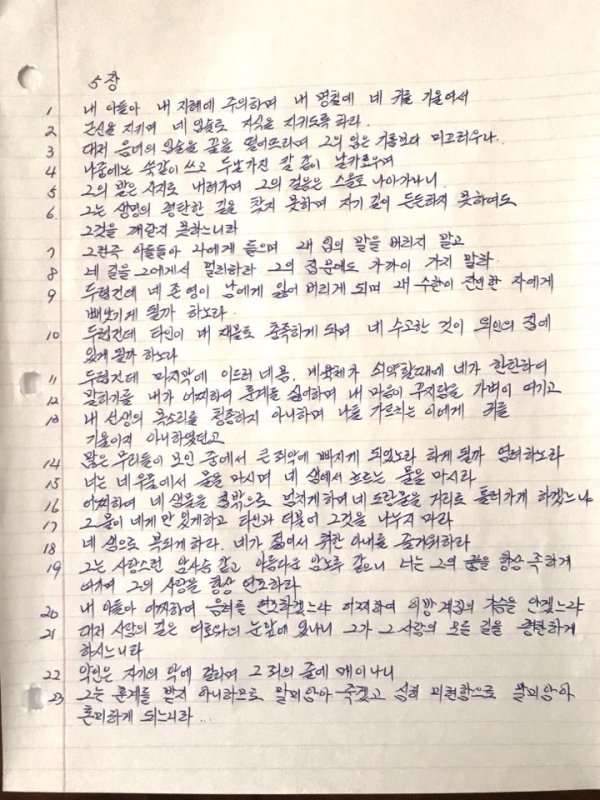 5 장
1 내 아들아 내 지혜에 주의하며 내 명철에 네 귀를 기울여서
2 근신을 지키며 네 입술로 지식을 지키도록 하라.
3 대저 음녀의 입술은 꿀을 떨어뜨리며 그의 입은 기름보다 미끄러우나
4 나중에는 쑥같이 쓰고 두날가진 칼 같이 날카로우며
5 그의 발은 사지로 내려가며 그의 걸음은 스올로 나아가나니
6 그는 생명의 평탄한 길을 찾지 못하며 자기 길이 든든하지 못하여도
그것을 깨닫지 못하느니라
7 그런즉 아들들아 나에게 들으며 내 입의 말을 버리지 말고
8 네 길을 그에게서 멀리하라 그의 집 문에도 가까이 가지 말라
9 두렵건데 네 존영이 남에게 잃어 버리게 되며 네 수한이 잔인한 자에게
빼앗기게 될까 하노라
10 두렵건데 타인이 네 재물로 충족하게 되며 네 수고한 것이 외인의 집에
있게 될까 하노라
11 두렵건데 마지막에 이르러 네몸, 네육체가 쇠약할때에 네가 한탄하여
12 말하기를 내가 어찌하여 훈계를 싫어하며 내 마음이 꾸지람을 가벼이 여기고
13 내 선생의 목소리를 청종하지 아니하며 나를 가르치는 이에게 귀를
기울이지 아니하였던고
14 많은 무리들이 모인 중에서 큰 죄악에 빠지게 되었노라 하게 될까 염려하노라
15 너는 네 우물에서 물을 마시며 네 샘에서 흐르는 물을 마시라
16 어찌하여 네 샘물을 집밖으로 넘치게하며 네 도랑물을 거리로 흘러가게 하겠느냐
17 그 물이 네게만 있게하고 타인과 더불어 그것을 나누지 마라
18 네 샘으로 복되게 하라. 네가 젊어서 취한 아내를 즐거워하라
19 그는 사랑스런 암사슴 같고 아름다운 암노루 같으니 너는 그의 품을 항상 족하게
여기며 그의 사랑을 항상 연모하라
20 내 아들아 어찌하여 음녀를 연모하겠느냐 어찌하여 이방 계집의 가슴을 안겠느냐
21 대저 사람의 길은 여호와의 눈앞에 있나니 그가 그 사람의 모든 길을 평탄하게
하시느니라
22 악인은 자기의 악에 걸리며 그 죄의 줄에 매이나니
23 그는 훈계를 받지 아니하므로 말미암아 죽겠고 심히 미련함으로 말미암아
혼미하게 되느니라...